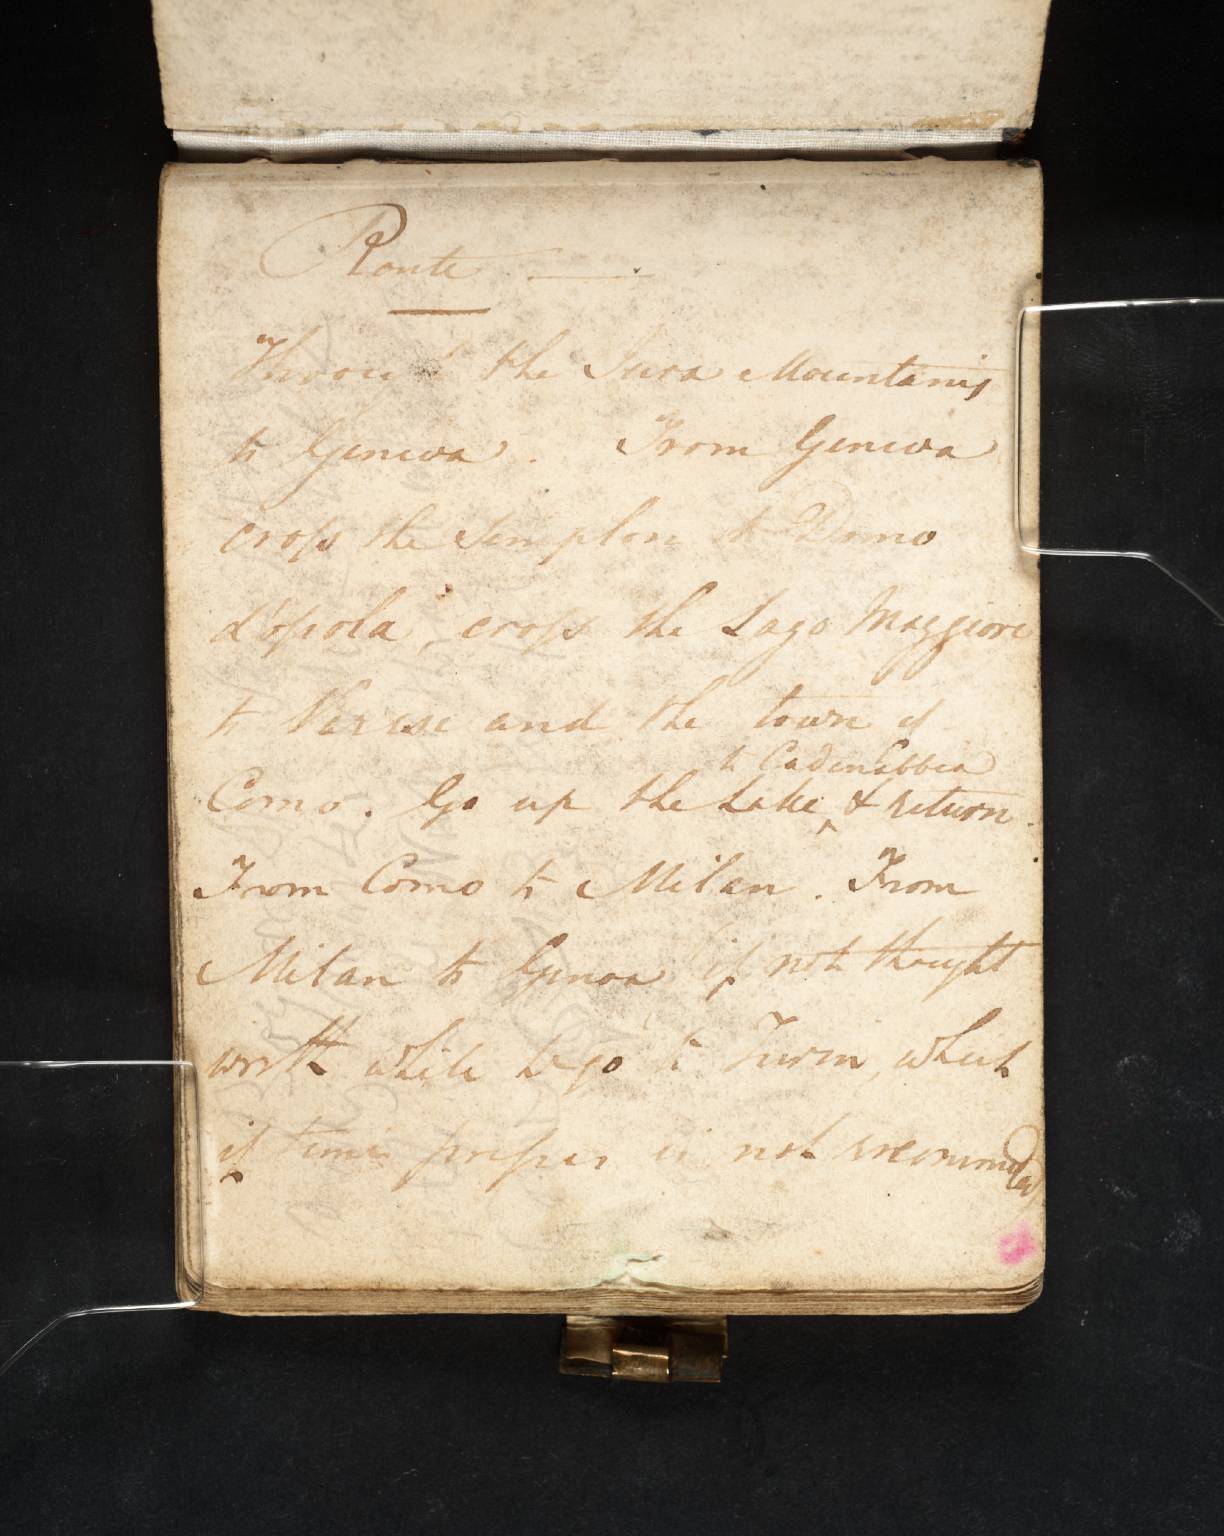 Route
Throug' the Jura Mountains
to Geneva. From Geneva
cross the Simplon to Domo
d'Ossola, cross the Lago Maggiore
to Varese and the town of
to Cadenabbia
Como. Go up the Lake ^ & return.
From Como to Milan. From
Milan to Genoa (if not thought
worth while to go to Turin, which
if time presses is not recommended)